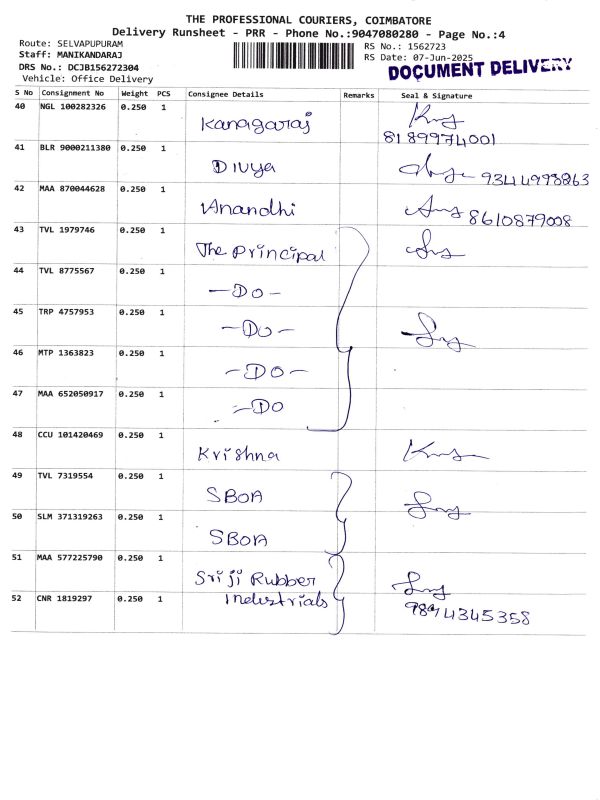 THE PROFESSIONAL COURIERS, COIMBATORE
Delivery Runsheet - PRR - Phone No.:9047080280 - Page No.:4
Route: SELVAPUPURAM
Staff: MANIKANDARAJ
DRS No.: DCJB156272304
Vehicle: Office Delivery
RS No.: 1562723
RS Date: 07-Jun-2025
DOCUMENT DELIVERY
S No Consignment No Weight PCS Consignee Details Remarks Seal & Signature
40 NGL 100282326 0.250 1 Kanagaraj
8189974001
41 BLR 9000211380 0.250 1 Divya 9344998263
42 MAA 870044628 0.250 1 Anandhi 8610879008
43 TVL 1979746 0.250 1 The Principal
44 TVL 8775567 0.250 1 -DO-
45 TRP 4757953 0.250 1 -DO-
46 MTP 1363823 0.250 1 -DO-
47 MAA 652050917 0.250 1 -DO
48 CCU 101420469 0.250 1 Krishna
49 TVL 7319554 0.250 1 SBOA
50 SLM 371319263 0.250 1 SBOA
51 MAA 577225790 0.250 1 Sriji Rubber
52 CNR 1819297 0.250 1 Industrials 9894345358